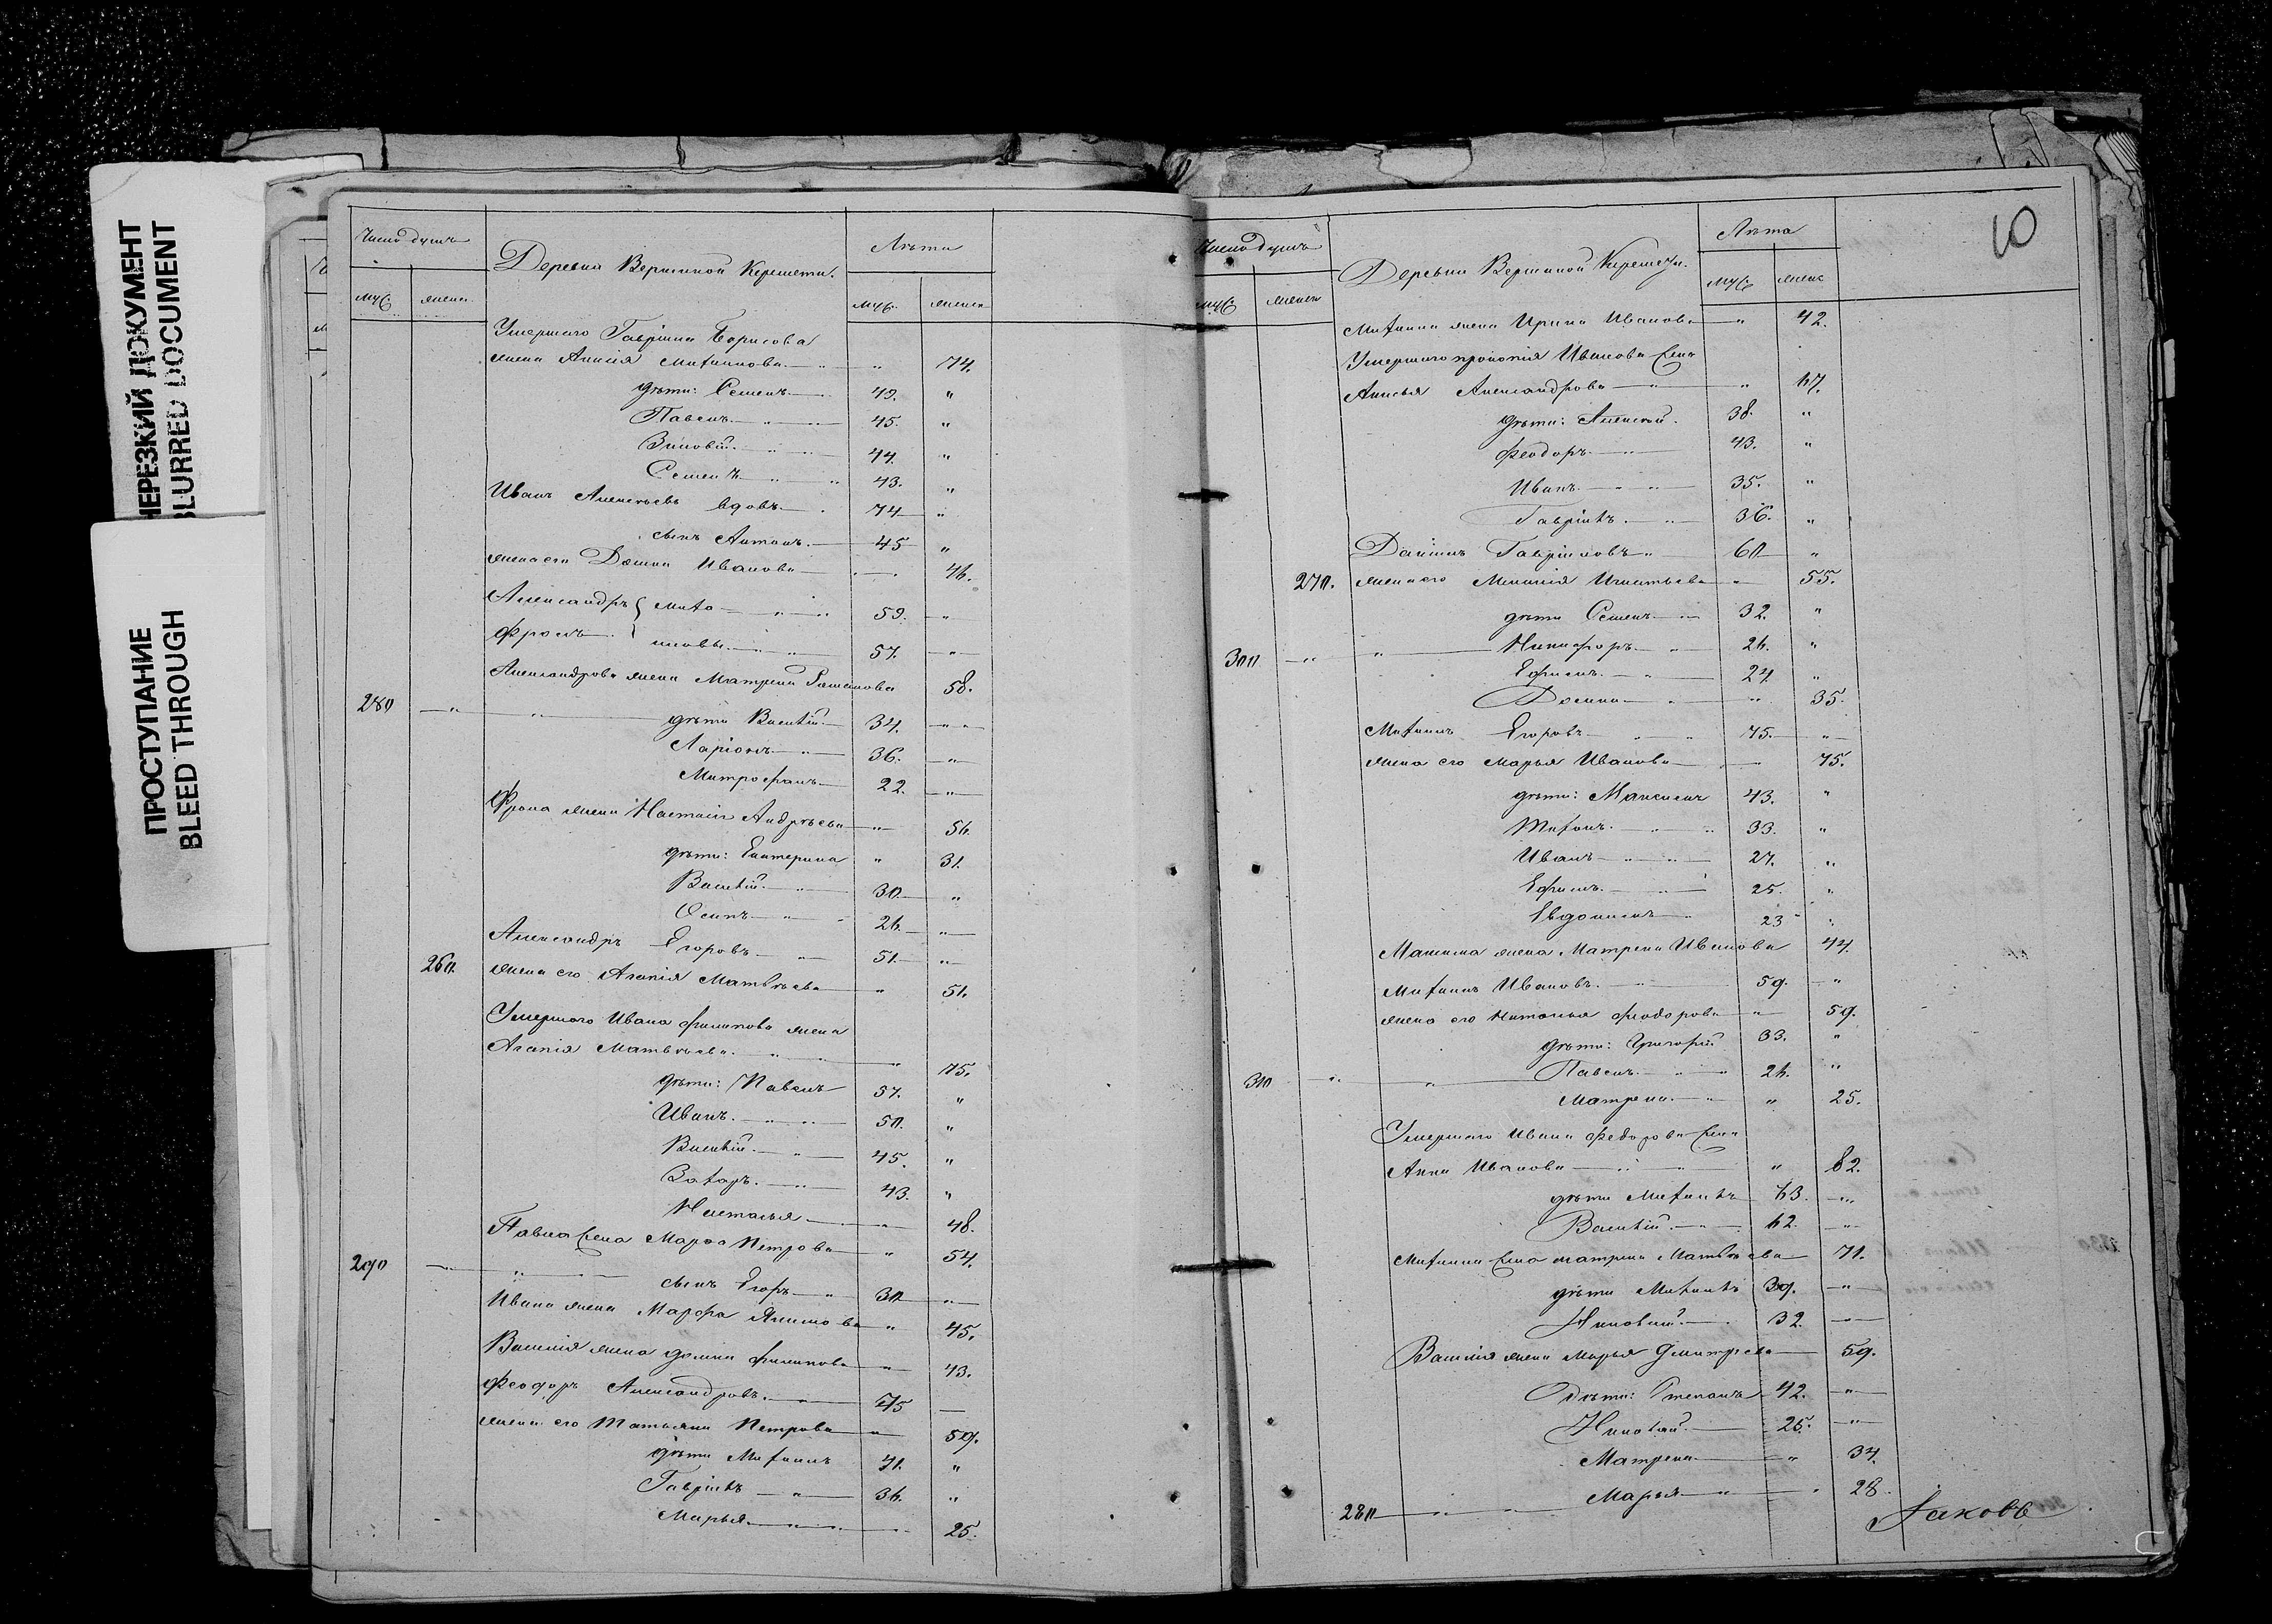 НЕРЕЗКИЙ ДОКУМЕНТ
BLURRED DOCUMENT
ПРОСТУПАНИЕ
BLEED THROUGH
Число душъ
Деревни Вершиной Керешети.
Лѣта
муж. женск.
муж. женск.
Умершаго Гавріила Борисова
жена Анисія Михаилова — " 74.
дѣти: Семенъ — 49. "
Павелъ — 45. "
Зиновій — 44. "
Семенъ — 43. "
Иванъ Алексѣевъ вдовъ — 74 "
сынъ Антонъ. — 45 "
жена его Домна Иванова — 46.
Александръ } Миха — 59. "
Фролъ } иловы — 57. "
Александрова жена Матрена 58.
280 — " " дѣти Василій — 34. "
Ларіонъ — 36. "
Митрофанъ — 22. "
Фрола жена Настасія Андрѣева — " 56.
дѣти: Екатерина " 31.
Василій — 30. "
Осипъ — 26. "
Александръ Егоровъ — 51. "
260. жена его Агапія Матвѣева " 51.
Умершаго Ивана Филипова жена
Агапія Матвѣева. — " 75.
дѣти: Павелъ 57. "
Иванъ. — 50. "
Василій — 45. "
Захаръ. — 43. "
Настасья — " 48.
Павла жена Марфа Петрова — " 54.
290 — " сынъ Егоръ — 30 "
Ивана жена Марфа Якимова " 45.
Василія жена Домна Филипова — " 43.
Феодоръ Александровъ. — 75 —
жена его Татьяна Петрова — " 59.
дѣти Михаилъ 41. "
Гавріилъ — 36. "
Марья — " 25.
10
Число душъ
Деревни Вершиной Керешети.
Лѣта
муж. женск.
муж. женск.
Михаила жена Ирина Иванова — " 42.
Умершаго Прокопія Иванова жена
Анисья Александрова — " 67.
дѣти: Алексѣй. 38. "
Феодоръ — 43. "
Иванъ — 35. "
Гавріилъ. — 36. "
Данилъ Гавриловъ — 60 "
270. жена его Игнатьева — " 55.
дѣти Семенъ — 32. "
300 — " " Никифоръ — 26. "
Ефимъ. — 24. "
Домна — " 35.
Михаилъ Егоровъ — 75. "
жена его Марья Иванова — 75.
дѣти: Максимъ 43. "
Тихонъ. — 33. "
Иванъ — 27. "
Ефимъ. — 25. "
Евдокимъ — 23 "
Максима жена Матрена Иванова 44.
Михаилъ Ивановъ. — 59. "
жена его Наталья Феодорова — " 59.
дѣти: Григорій 33. "
310 — " " Павелъ. — 26. "
Матрена. — " 25.
Умершаго Ивана Федорова жена
Анна Иванова — " 82.
дѣти Михаилъ 63. "
Василій. — 62. "
Михаила жена Матрена Матвѣева — 71.
дѣти Михаилъ 39. "
32. —
Василія жена Марья Дмитріева — 59.
дѣти: Степанъ 42. "
25. "
Матрена — " 34.
280 — " " Марья — " 28.
Іаковъ